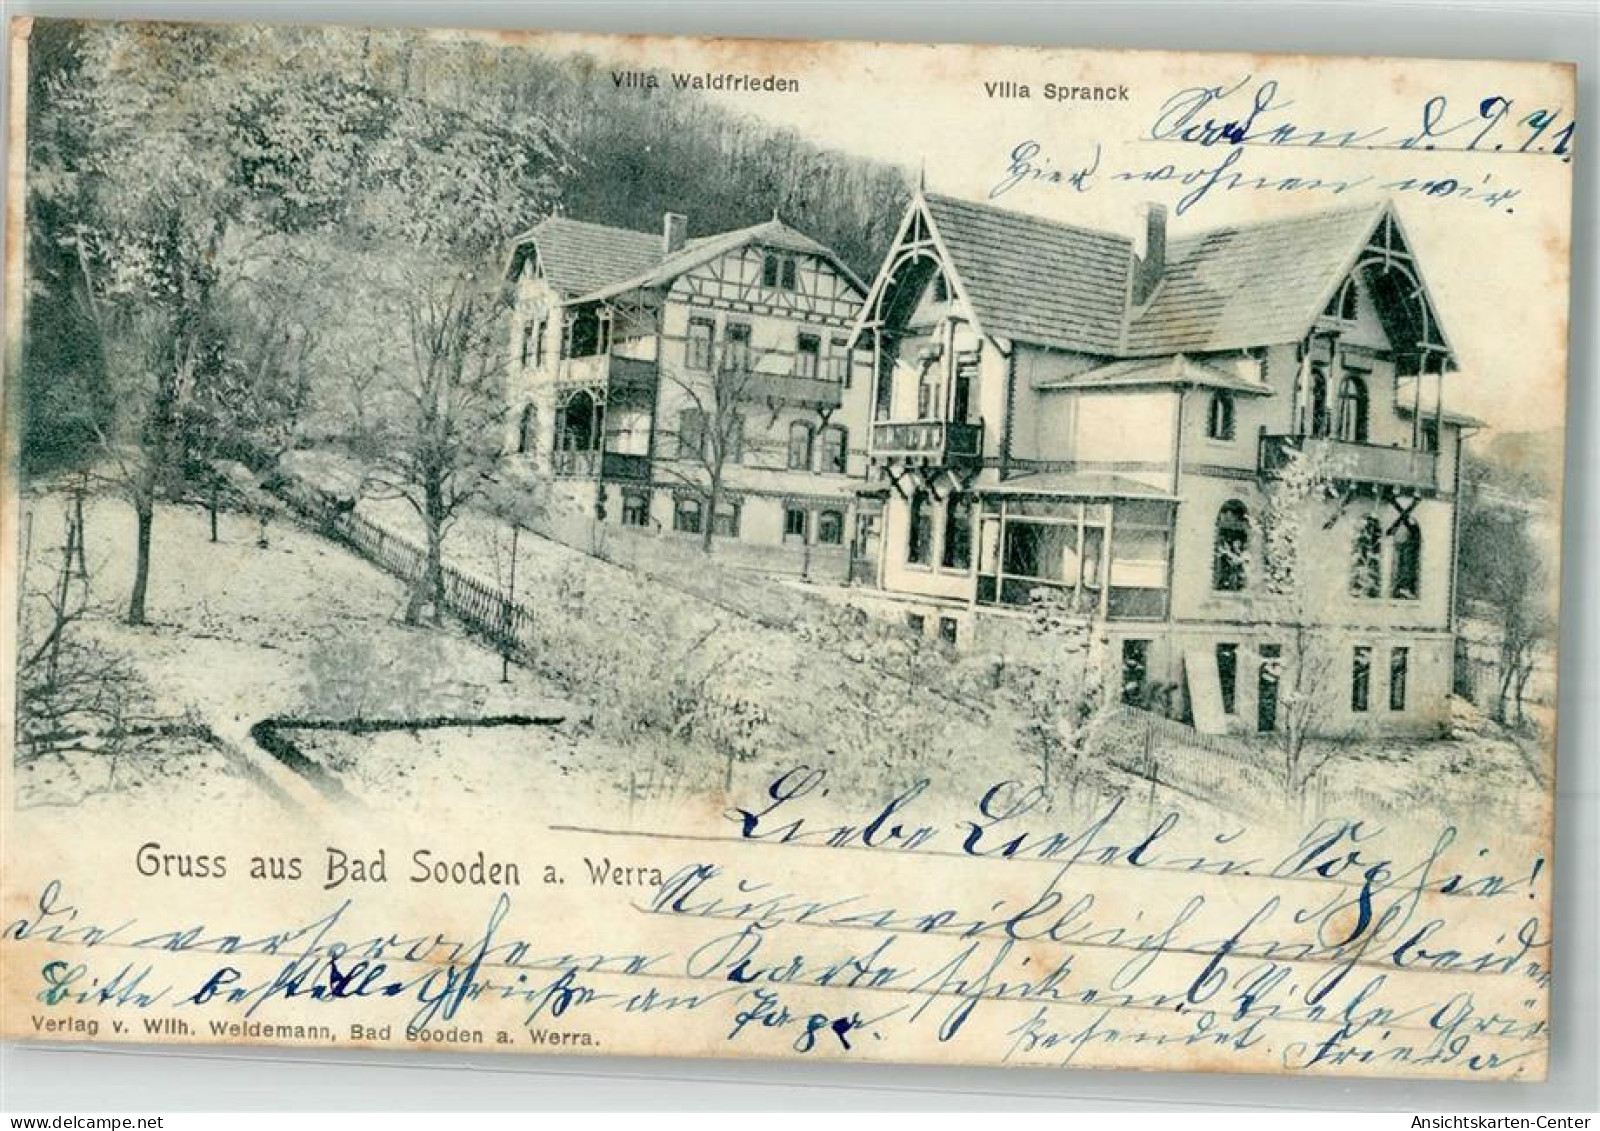 Villa Waldfrieden
Villa Spranck
Sooden d. 9.4.
Hier wohnen wir.
Gruss aus Bad Sooden a. Werra
Liebe Liesel u. Sophie!
Nun will ich Euch beiden
die versprochene Karte schicken. Viele Grü
Bitte bestelle Grüße an Papa.
sendet Frieda.
Verlag v. Wilh. Weidemann, Bad Sooden a. Werra.
Ansichtskarten-Center